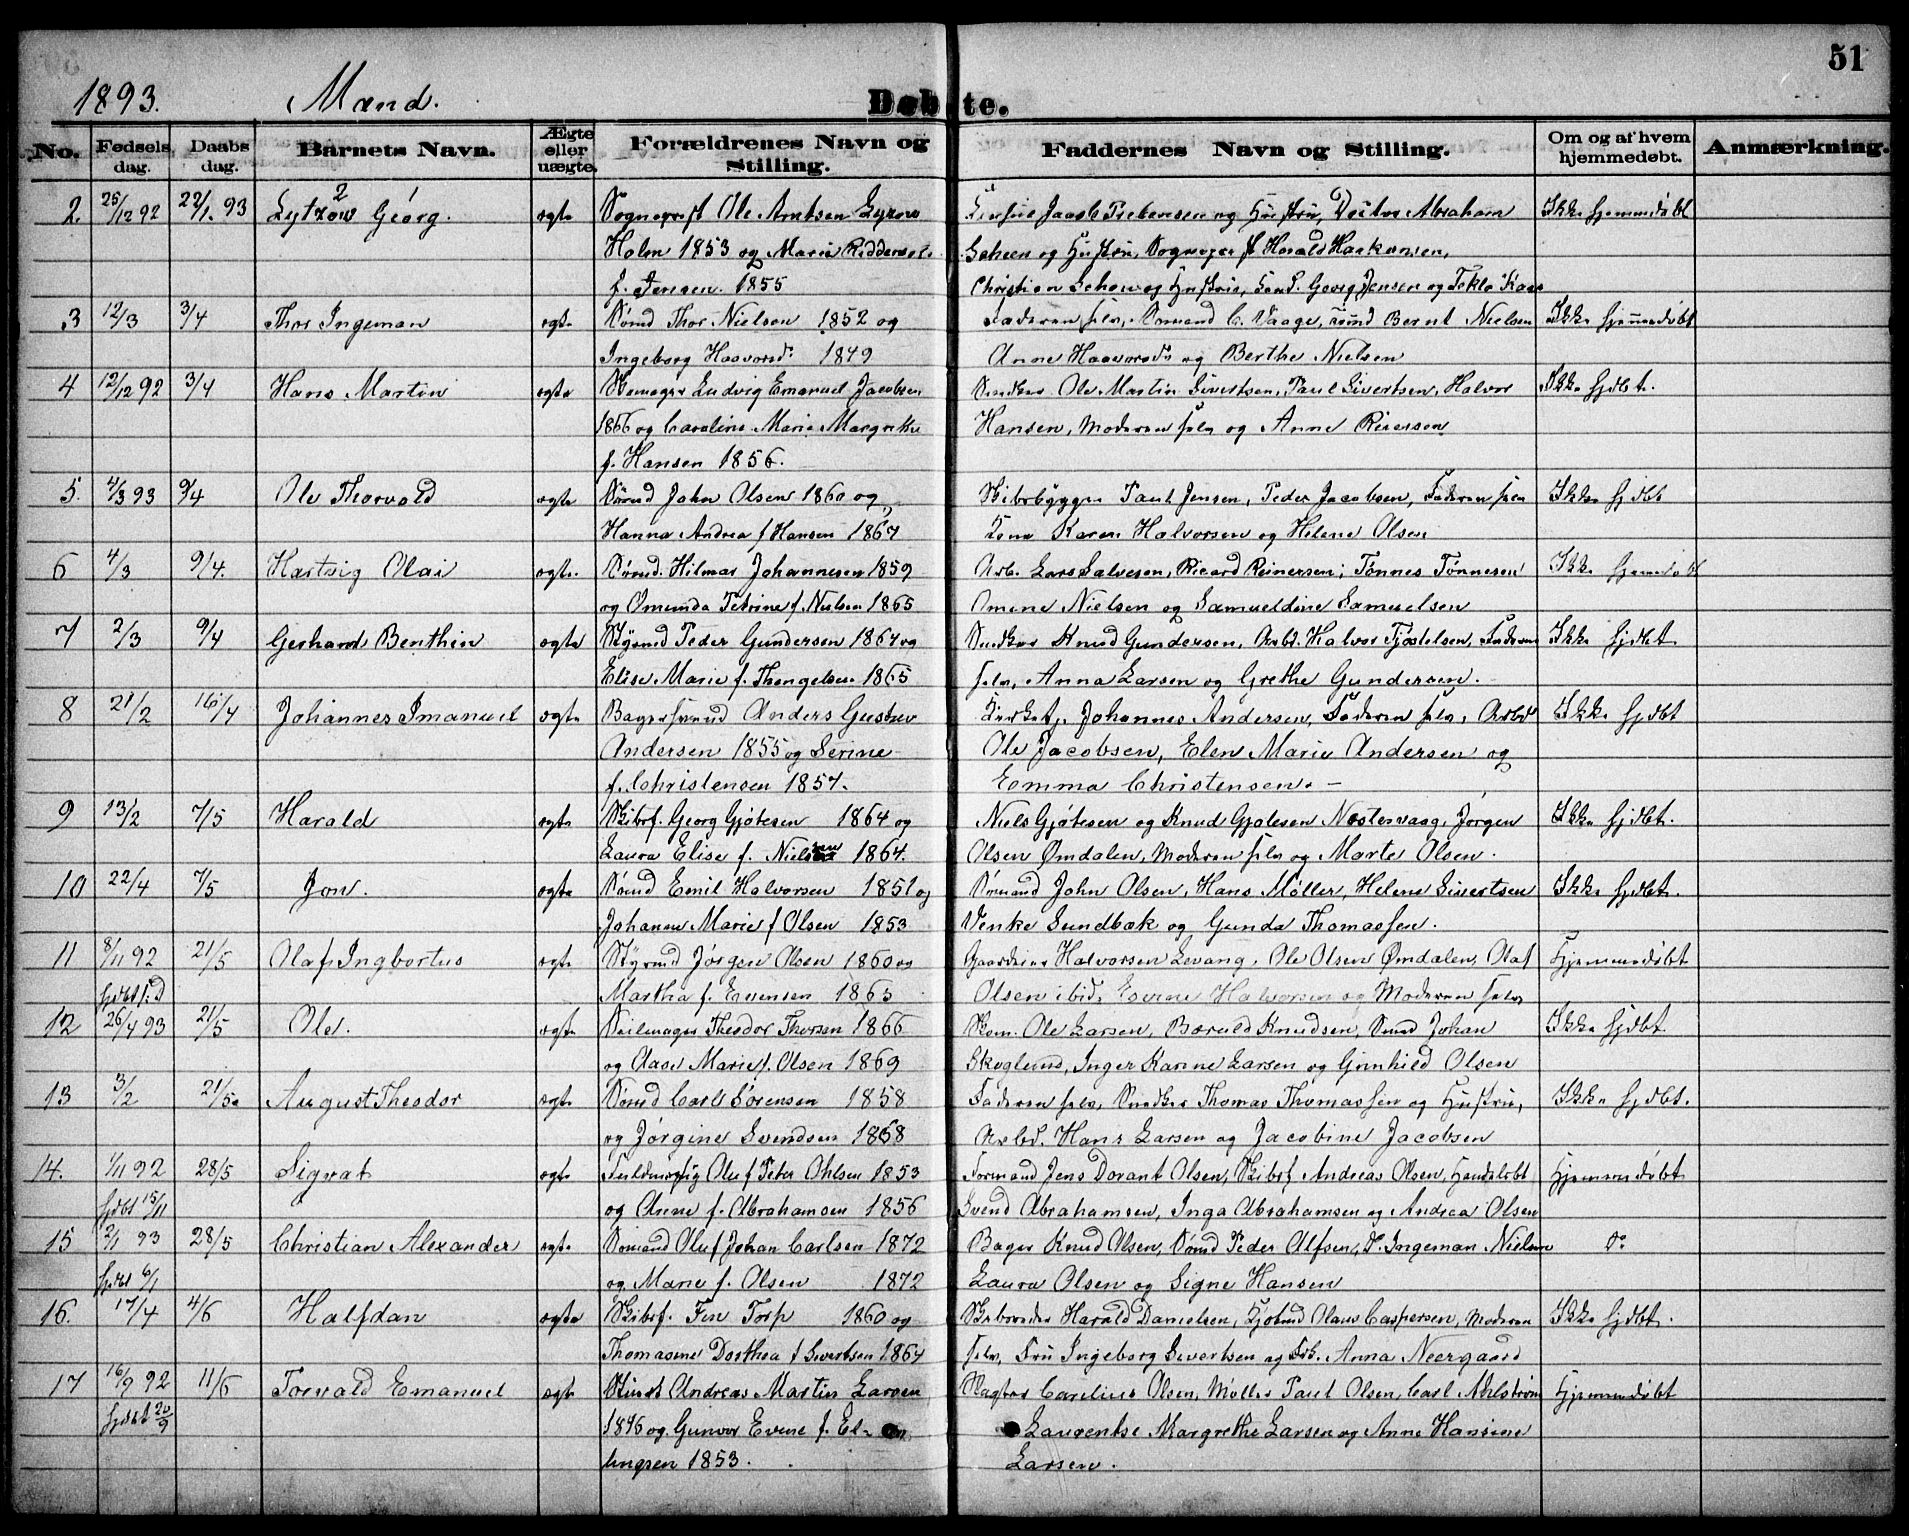 51
1893. Mand. Døbte.
No. Fødsels dag. Daabs dag. Barnets Navn. Ægte eller uægte. Forældrenes Navn og Stilling. Faddernes Navn og Stilling. Om og af hvem hjemmedøbt. Anmærkning.
2. 25/12 92 22/1. 93 Lytzow Georg. ægte Ole Amtsen Lyzow Jacob Prebensen og Hustru, Abraham Ikke hjemmedøbt
Holm 1853 og Maria og Hustru, Harald Haakonsen,
f. Jensen. 1855 Christian Schow og Hustru, Georg Jensen og Tekla
3 12/3 3/4 Thor Ingeman ægte Sømd Thor Nielsen 1852 og Faderen selv, Sømand C. Vaage, Sømd Bernt Nielsen Ikke hjemmedøbt
Ingeborg Haavorsd: 1849 Anne Haavorsd: og Berthe Nielsen
4 12/12 92 3/4 Hans Martin ægte Ludvig Emanuel Jacobsen Snedker Ole Martin Sivertsen, Paul Sivertsen, Halvor Ikke hjdbt.
1866 og Caroline Marie Margrethe Hansen, Moderen selv og Anne Reiersen
f. Hansen 1856.
5. 4/3 93 9/4 Ole Thorvald ægte Sømd John Olsen 1860 og Skibsbygger Paul Jensen, Peder Jacobsen, Faderen selv Ikke hjdbt
Hanna Andrea f Hansen 1867 Kone Karen Halvorsen og Helene Olsen
6 4/3 9/4. Hartvig Olai ægte. Sømd. Hilmar Johannesen 1859 Arb. Lars Salvesen, Ricard Reinersen, Tønnes Tønnesen Ikke hjemmedøbt
og Omunda Petrine f. Nielsen 1865 Omine Nielsen og Samueldine Samuelsen
7 2/3 9/4 Gerhard Benthin ægte Stymd Peder Gundersen 1867 og Snedker Knud Gundersen, Arbd. Halvor Tjøstelsen, Faderen Ikke hjdbt.
Elise Marie f. Thengelsen 1865 selv, Anna Larsen og Grethe Gundersen.
8 21/2 16/4 Johannes Imanuel ægte Bagersvend Anders Gustav Johannes Andersen, Faderen selv, Arbd Ikke hjdbt
Andersen 1855 og Serine Ole Jacobsen, Elen Marie Andersen og
f. Christensen 1857. Emma Christensen. –
9 13/2 7/5 Harald ægte Skibsf. Georg Gjøtesen 1864 og Niels Gjøtesen og Knud Gjøtesen Næstervaag, Jørgen Ikke hjdbt.
Laura Elise f. Nielsen 1864. Olsen Ømdalen, Moderen selv og Marte Olsen.
10 22/4 7/5 Jon. ægte Sømd Emil Halvorsen 1851 og Sømand John Olsen, Hans Møller, Helene Sivertsen Ikke hjdbt.
Johanne Marie f Olsen 1853 Venke Sundbæk og Gunda Thomassen.
11 8/11 92 21/5 Olaf Ingbortus ægte Stymd Jørgen Olsen 1860 og Gaardeier Halvorsen Levang, Ole Olsen Ømdalen, Olaf Hjemmedøbt
hjdbt s: D Martha f. Evensen 1865 Olsen ibid, Halvorsen og Moderen selv
12 26/4 93 21/5 Ole. ægte Seilmager Theodor Thorsen 1866 Skom. Ole Larsen, Knudsen, Johan Ikke hjdbt.
og Aase Marie f. Olsen 1869 Skoglund, Inger Karine Larsen og Gunhild Olsen
13 3/2 21/5 August Theodor ægte Sømd Carl Sørensen 1858 Faderen selv, Snedker Thomas Thomassen og Hustru, Ikke hjdbt.
og Jørgine Svendsen 1868 Arbd. Hans Larsen og Jacobine Jacobsen
14. 1/11 92 28/5 Sigvat ægte Oluf Peter Ohlsen 1853 Formand Jens Dorant Olsen, Skibsf Andreas Olsen, Hjemmedøbt
hjdbt 15/11 og Anne f. Abrahamsen 1856 Svend Abrahamsen, Inga Abrahamsen og Andrea Olsen
15 2/1 93 28/5 Christian Alexander ægte Sømand Oluf Johan Carlsen 1872 Bager Knud Olsen, Sømd Peder Alfsen, Do. Ingeman Nielsen Do
hjdbt 6/1 og Marie f. Olsen 1872 Laura Olsen og Signe Hansen
16. 17/4 4/6 Halfdan ægte Skibsf. Fin Torp 1860 og Skibsreder Harald Danielsen, Kjøbmd Olaus Caspersen, Moderen Ikke hjdbt.
Thomasine Dorthea f Sivertsen 1867 selv, Fru Ingeborg Sivertsen og Anna Neergaard
17 16/9 92 11/6 Torvald Emanuel ægte Andreas Martin Larsen Olsen, Møller Paul Olsen, Carl Ahlstrøm Hjemmedøbt
hjdbt 20/9 1846 og Gunvor Evine f. El- Laurentse Margrethe Larsen og Anne Hansine
lingsen 1853. Larsen.